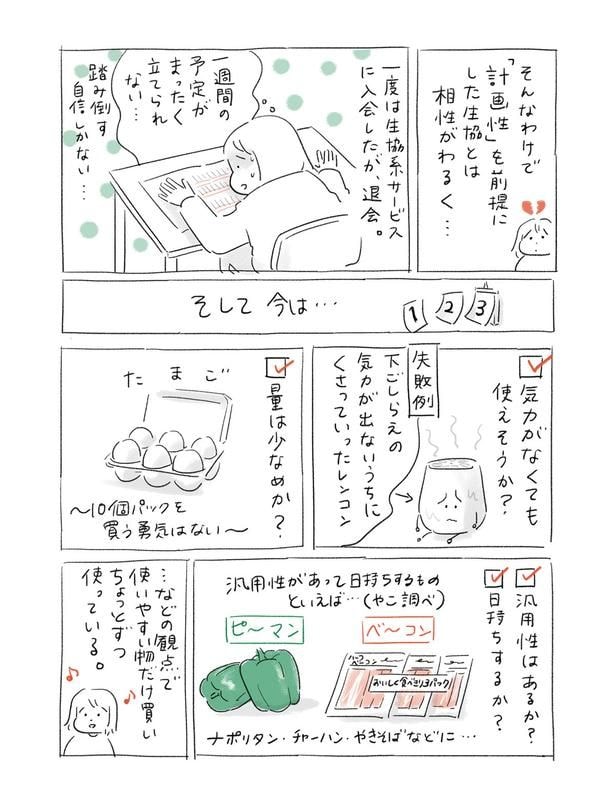 そんなわけで
「計画性」を前提に
した生協とは
相性がわるく…
一度は生協系サービス
に入会したが、退会。
一週間の
予定が
まったく
立てられ
ない…
踏み倒す
自信しかない…
そして今は…
1 2 3
気力がなくても
使えそうか?
失敗例
下ごしらえの
気力が出ないうちに
くさっていったレンコン
量は少なめか?
たまご
〜10個パックを
買う勇気はない〜
汎用性はあるか?
日持ちするか?
汎用性があって日持ちするもの
といえば…(やこ調べ)
ピ〜マン
ベ〜コン
ハーフ
ベーコン
おいしく食べきり3パック
ナポリタン・チャーハン・やきそばなどに…
…などの観点で
使いやすい物だけ買い
ちょっとずつ
使っている。